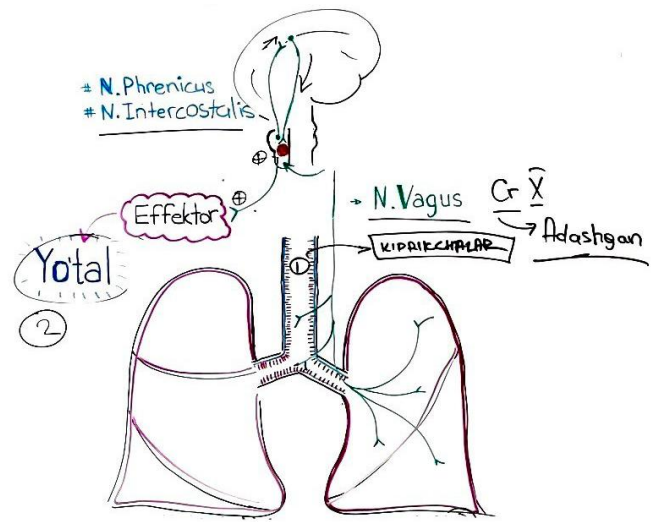 # N.Phrenicus
# N.Intercostalis
⊕
⊕
Effektor
Yo'tal
2
→ N.Vagus
Cr X
Adashgan
KIPRIKCHALAR
1